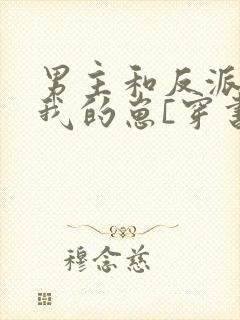 男主和反派
我的崽[穿书
穆念慈